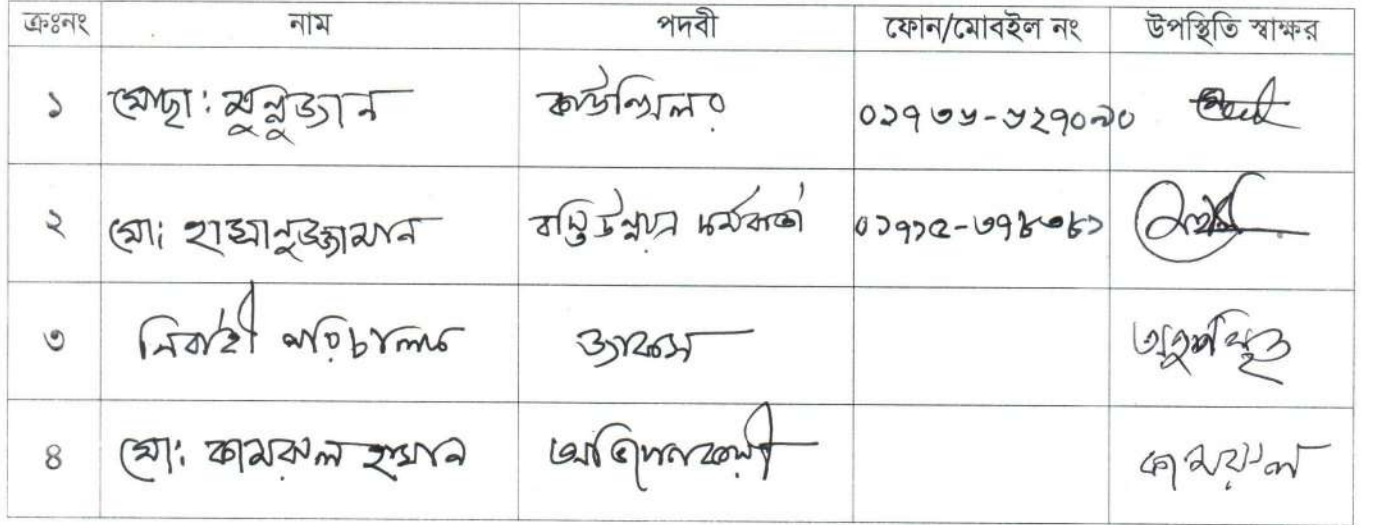 ক্রঃনং নাম পদবী ফোন/মোবাইল নং উপস্থিতি স্বাক্ষর
১ মোছা: মুন্নুজান কাউন্সিলর ০১৭৩৬-৬২৭০৯০
২ মো: হাছানুজ্জামান বস্তি উন্নয়ন কর্মকর্তা ০১৭১৫-৩৭৪৩৪১
৩ নির্বাহী পরিচালক অনুপস্থিত
৪ মো: কামরুল হাসান কামরুল